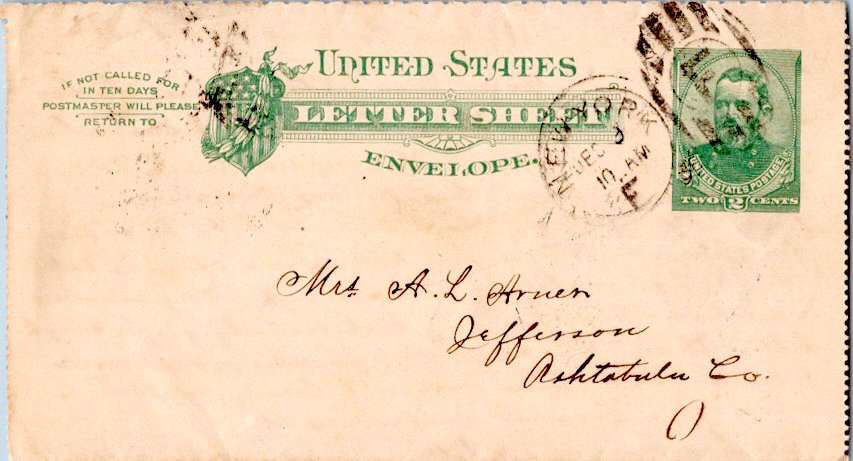 IF NOT CALLED FOR
IN TEN DAYS
POSTMASTER WILL PLEASE
RETURN TO
UNITED STATES
LETTER SHEET
ENVELOPE.
NEW YORK
DEC 9
10 AM
UNITED STATES POSTAGE
TWO 2 CENTS
Mrs A. L. Arner
Jefferson
Ashtabula Co.
O